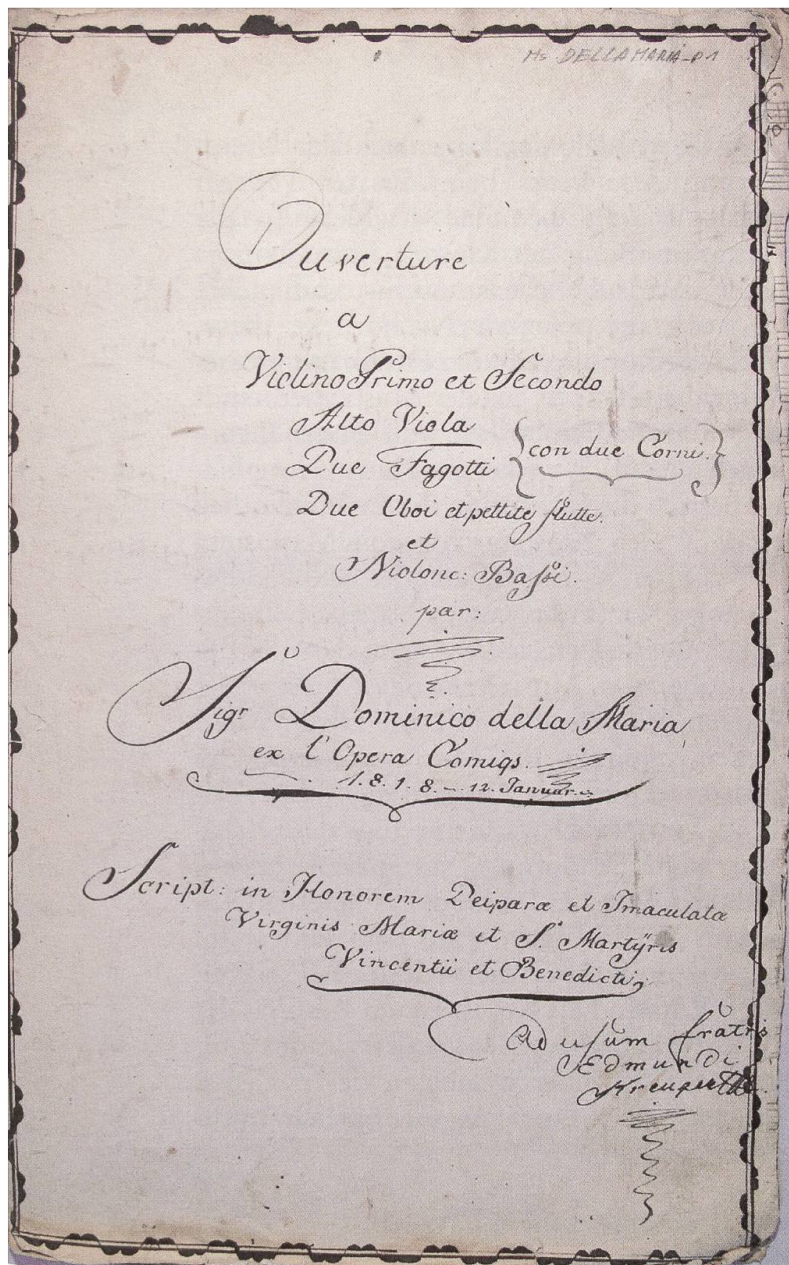 Ms DELLAMARIA-01
Ouverture
a
Violino Primo et Secondo
Alto Viola
Due Fagotti {con due Corni.}
Due Oboi et pettite flutte.
et
Violonc: Baſsi.
par:
Sigr Dominico della Maria
ex l'Opera Comiqs.
1.8.1.8. - 12. Januar.
Script: in Honorem Deiparæ et Imaculatæ
Virginis Mariæ et S. Martÿris
Vincentii et Benedicti,
Ad uſum fratris
Edmundi